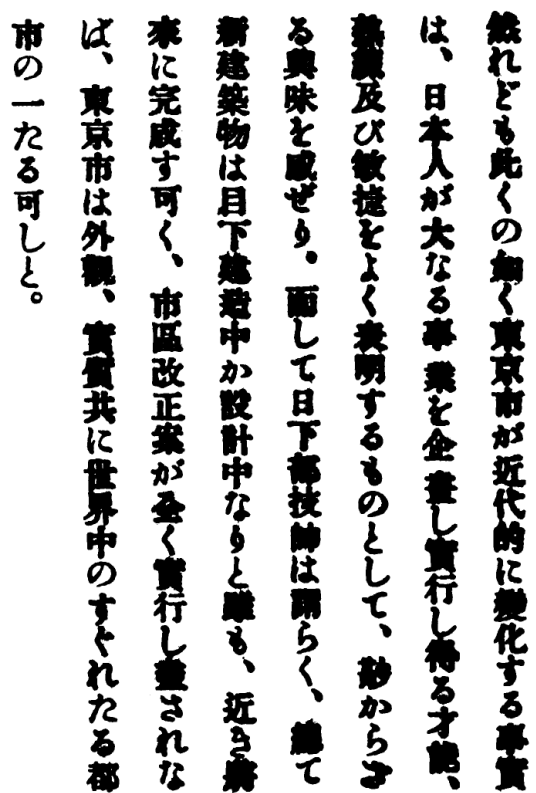 然れども此くの如く東京市が近代的に變化する事實
は、日本人が大なる事業を企畫し實行し得る才能、
熱誠及び敏捷をよく表明するものとして、尠からざ
る興味を感ぜり。而して日下部技師は謂らく、總て
新建築物は目下建造中か設計中なりと雖も、近き將
來に完成す可く、市區改正案が全く實行し盡されな
ば、東京市は外觀、實質共に世界中のすぐれたる都
市の一たる可しと。